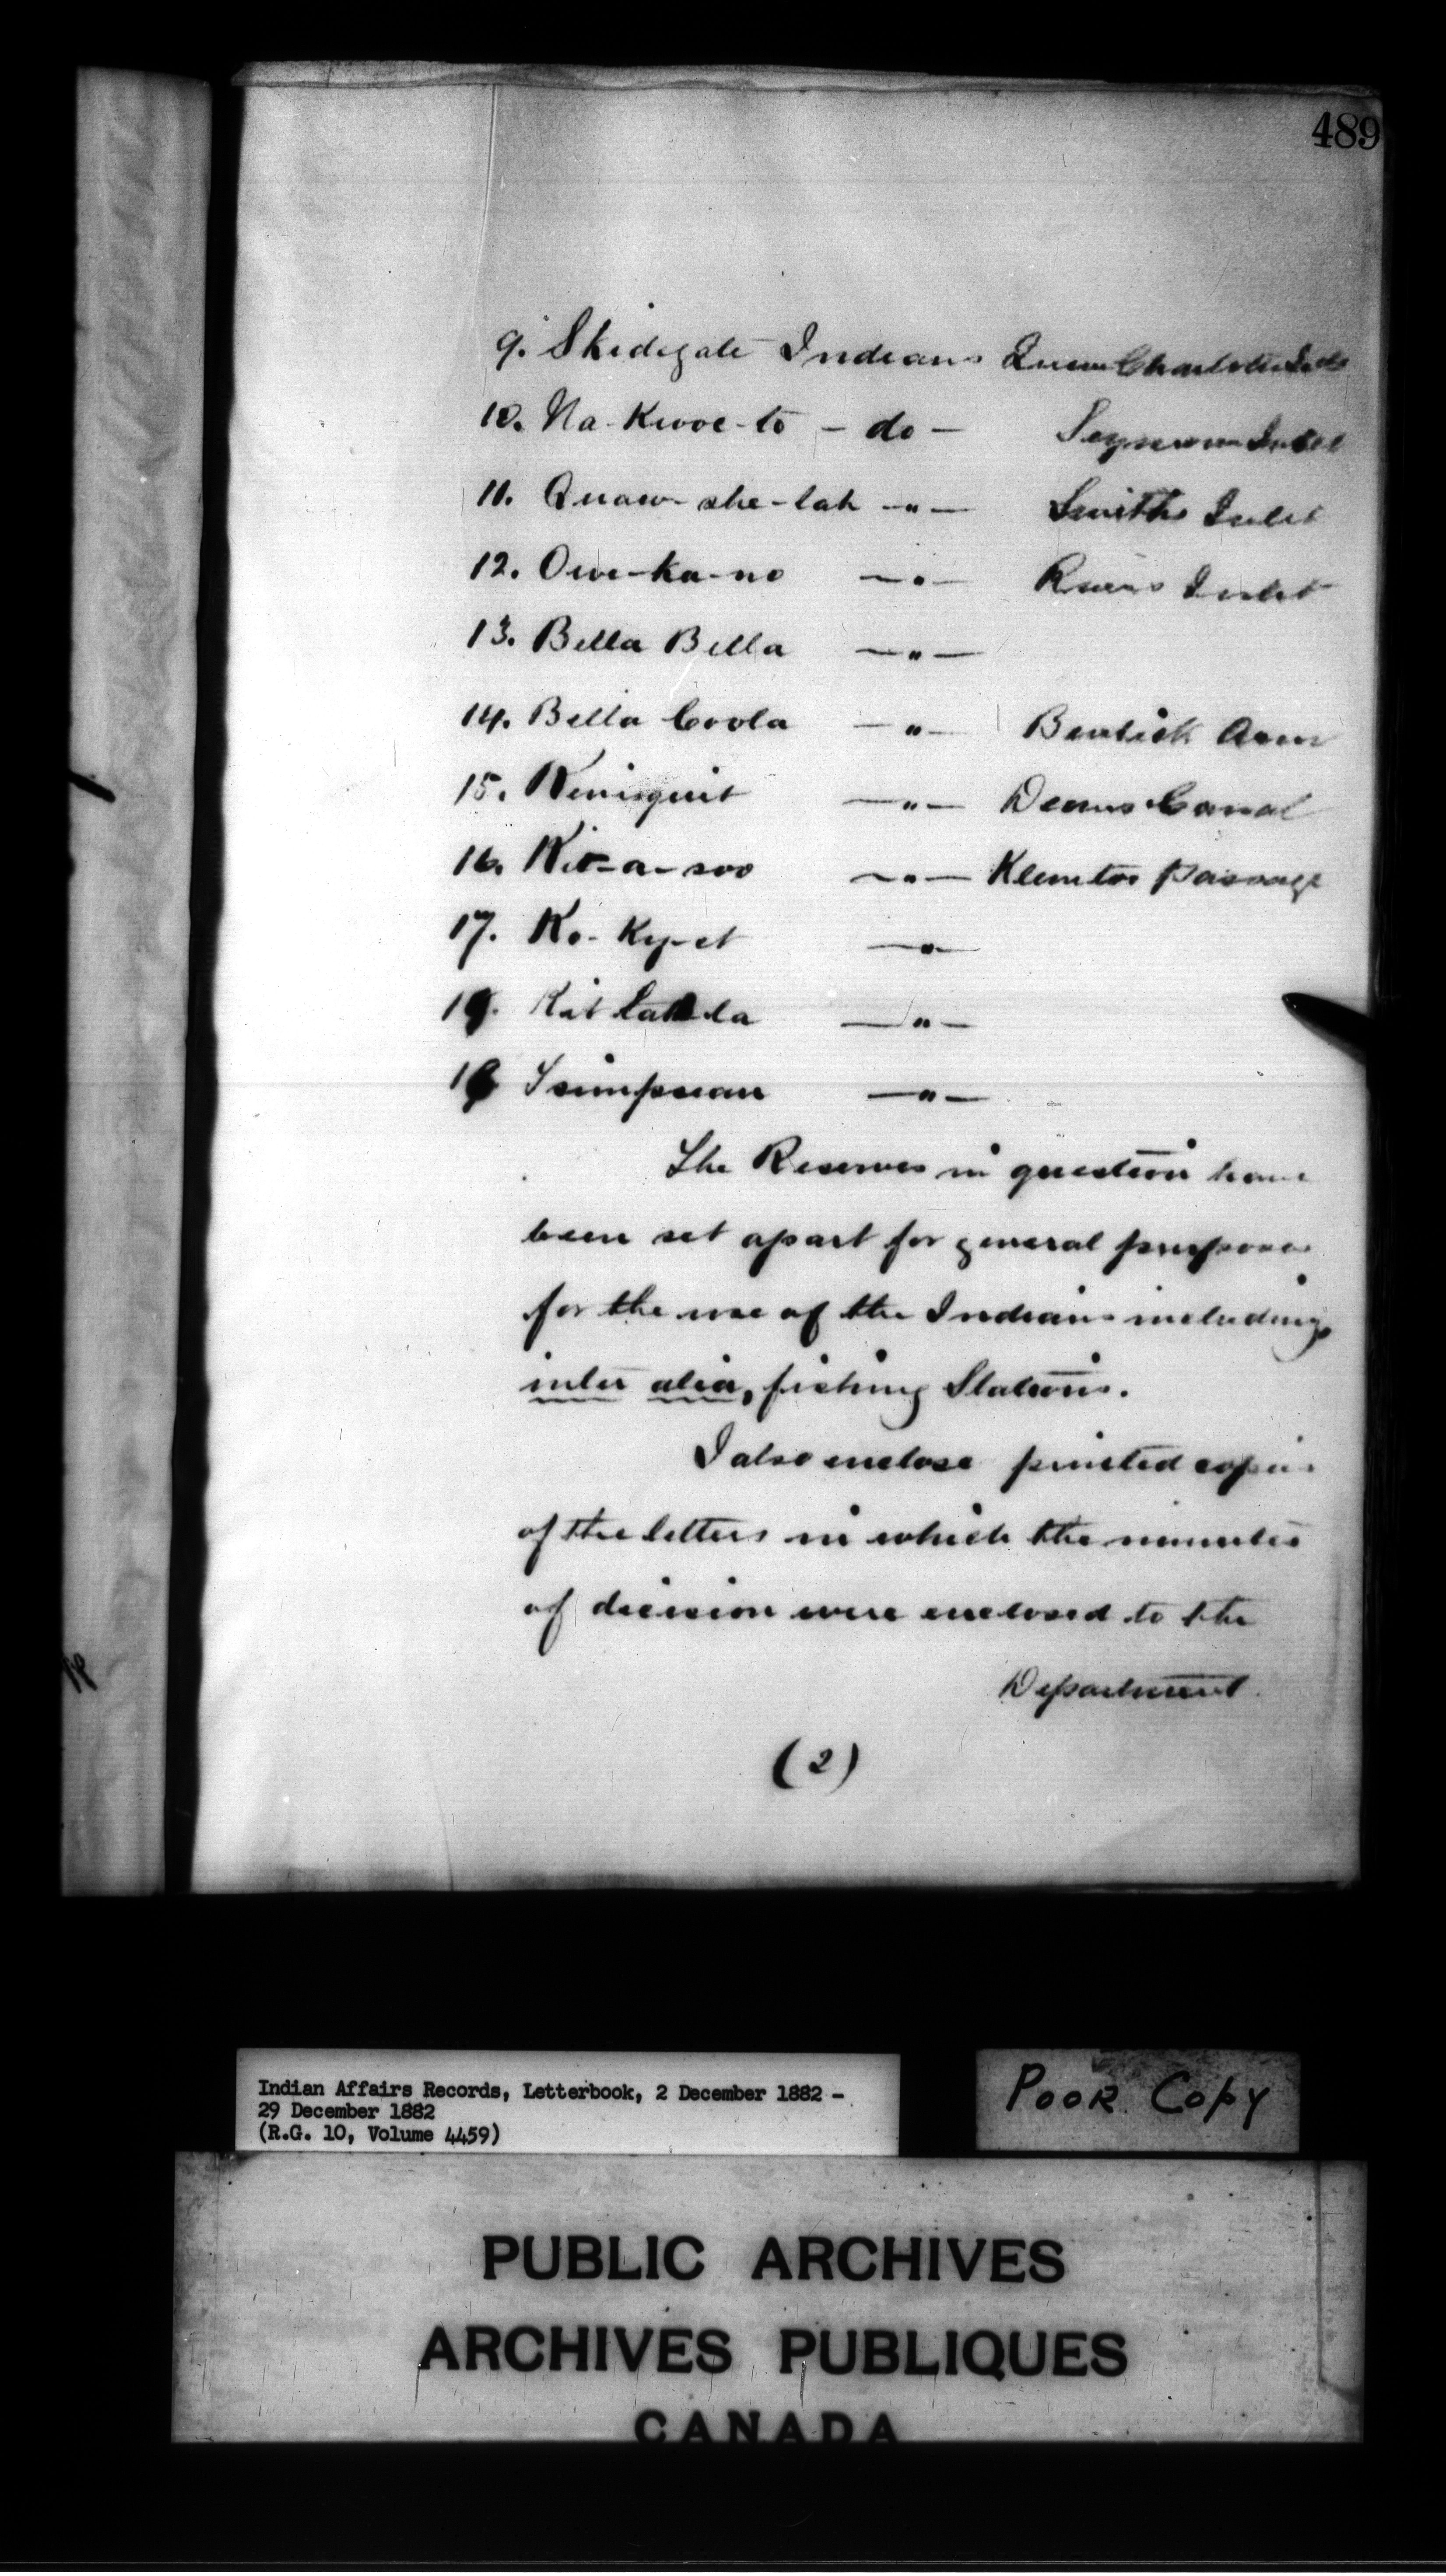 489
9. Skidegate Indians Queen Charlotte Isds
10. Na-Kwoc-to - do - Seymour Inlet
11. Quaw-she-lah -"- Smiths Inlet
12. Owe-ka-no -"- Rivers Inlet
13. Bella Bella -"-
14. Bella Coola -"- Bentick Arm
15. Kemsquit -"- Deans Canal
16. Kit-a-soo -"- Klemtoo Passage
17. Ko-Ky-et -"-
18. Kitlathla -"-
19 Tsimpsean -"-
The Reserves in question have
been set apart for general purposes
for the use of the Indians including,
inter alia, fishing Stations.
I also enclose printed copies
of the letters in which the minutes
of decision were enclosed to the
Department
(2)
Indian Affairs Records, Letterbook, 2 December 1882 -
29 December 1882
(R.G. 10, Volume 4459)
POOR COPY
PUBLIC ARCHIVES
ARCHIVES PUBLIQUES
CANADA